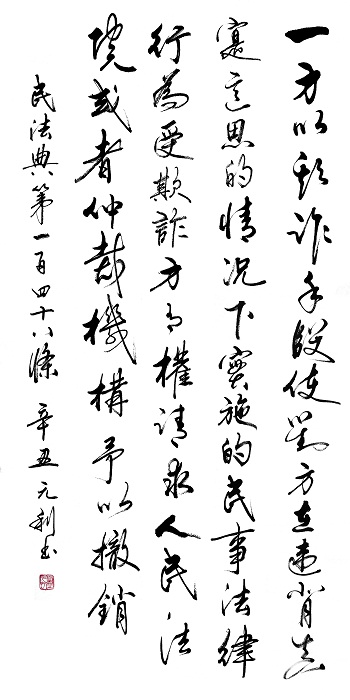 一方以欺诈手段使對方在违背真
寔意思的情况下實施的民事法律
行為受欺詐方有權请求人民法
院或者仲裁機構予以撤銷
民法典第一百四十八條 辛丑 元利书